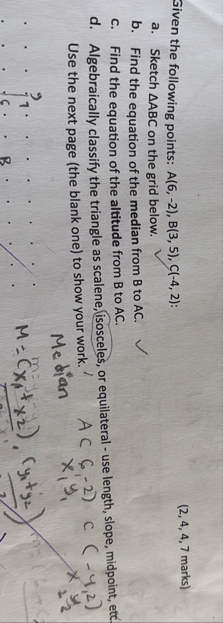 Given the following points: A(6, -2), B(3, 5), C(-4, 2):
(2, 4, 4, 7 marks)
a. Sketch ΔABC on the grid below.
b. Find the equation of the median from B to AC. ✓
c. Find the equation of the altitude from B to AC.
d. Algebraically classify the triangle as scalene, isosceles, or equilateral - use length, slope, midpoint, etc.
Use the next page (the blank one) to show your work.
Median
A (6, -2) C (-4, 2)
x₁ y₁ x₂ y₂
M = (x₁ + x₂), (y₁ + y₂)
B